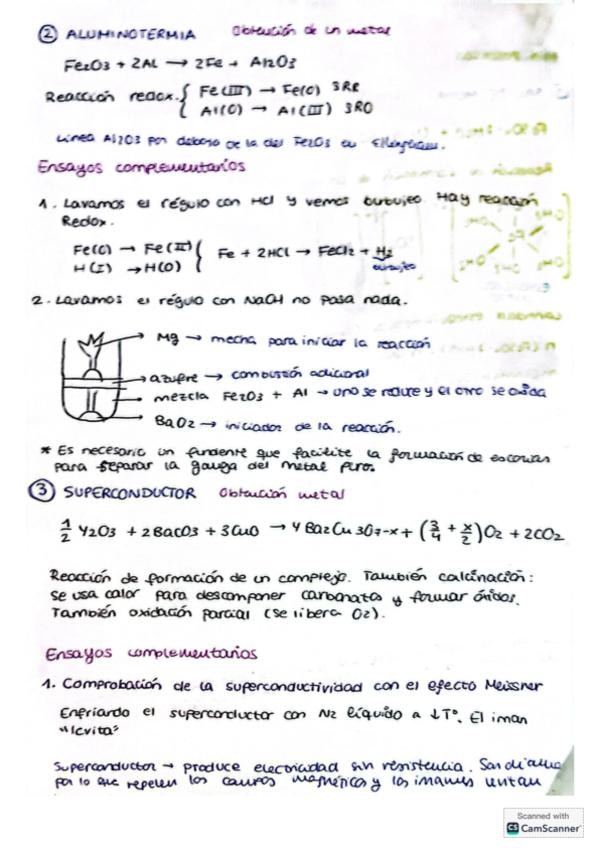 ② ALUMINOTERMIA Obtención de un metal
Fe2O3 + 2Al → 2Fe + Al2O3
Reacción redox. { Fe(III) → Fe(0) SRR
Al(0) → Al(III) SRO
Línea Al2O3 por debajo de la del Fe2O3 en Ellingham.
Ensayos complementarios
1. Lavamos el régulo con HCl y vemos burbujeo. Hay reacción
Redox.
Fe(0) → Fe(II) { Fe + 2HCl → FeCl2 + H2
H(I) → H(0) burbujeo
2. Lavamos el régulo con NaOH no pasa nada.
Mg → mecha para iniciar la reacción
azufre → combustión adicional
mezcla Fe2O3 + Al → uno se reduce y el otro se oxida
BaO2 → iniciador de la reacción.
* Es necesario un fundente que facilite la formación de escorias
para separar la ganga del metal puro.
③ SUPERCONDUCTOR Obtención metal
1/2 Y2O3 + 2BaCO3 + 3CuO → YBa2Cu3O7-x + (3/4 + x/2)O2 + 2CO2
Reacción de formación de un complejo. También calcinación:
se usa calor para descomponer carbonatos y formar óxidos.
También oxidación parcial (se libera O2).
Ensayos complementarios
1. Comprobación de la superconductividad con el efecto Meissner
Enfriando el superconductor con N2 líquido a ↓Tº. El iman
"levita"
Superconductor → produce electricidad sin resistencia. San
por lo que repelen los campos magnéticos y los imanes
Scanned with
CS CamScanner